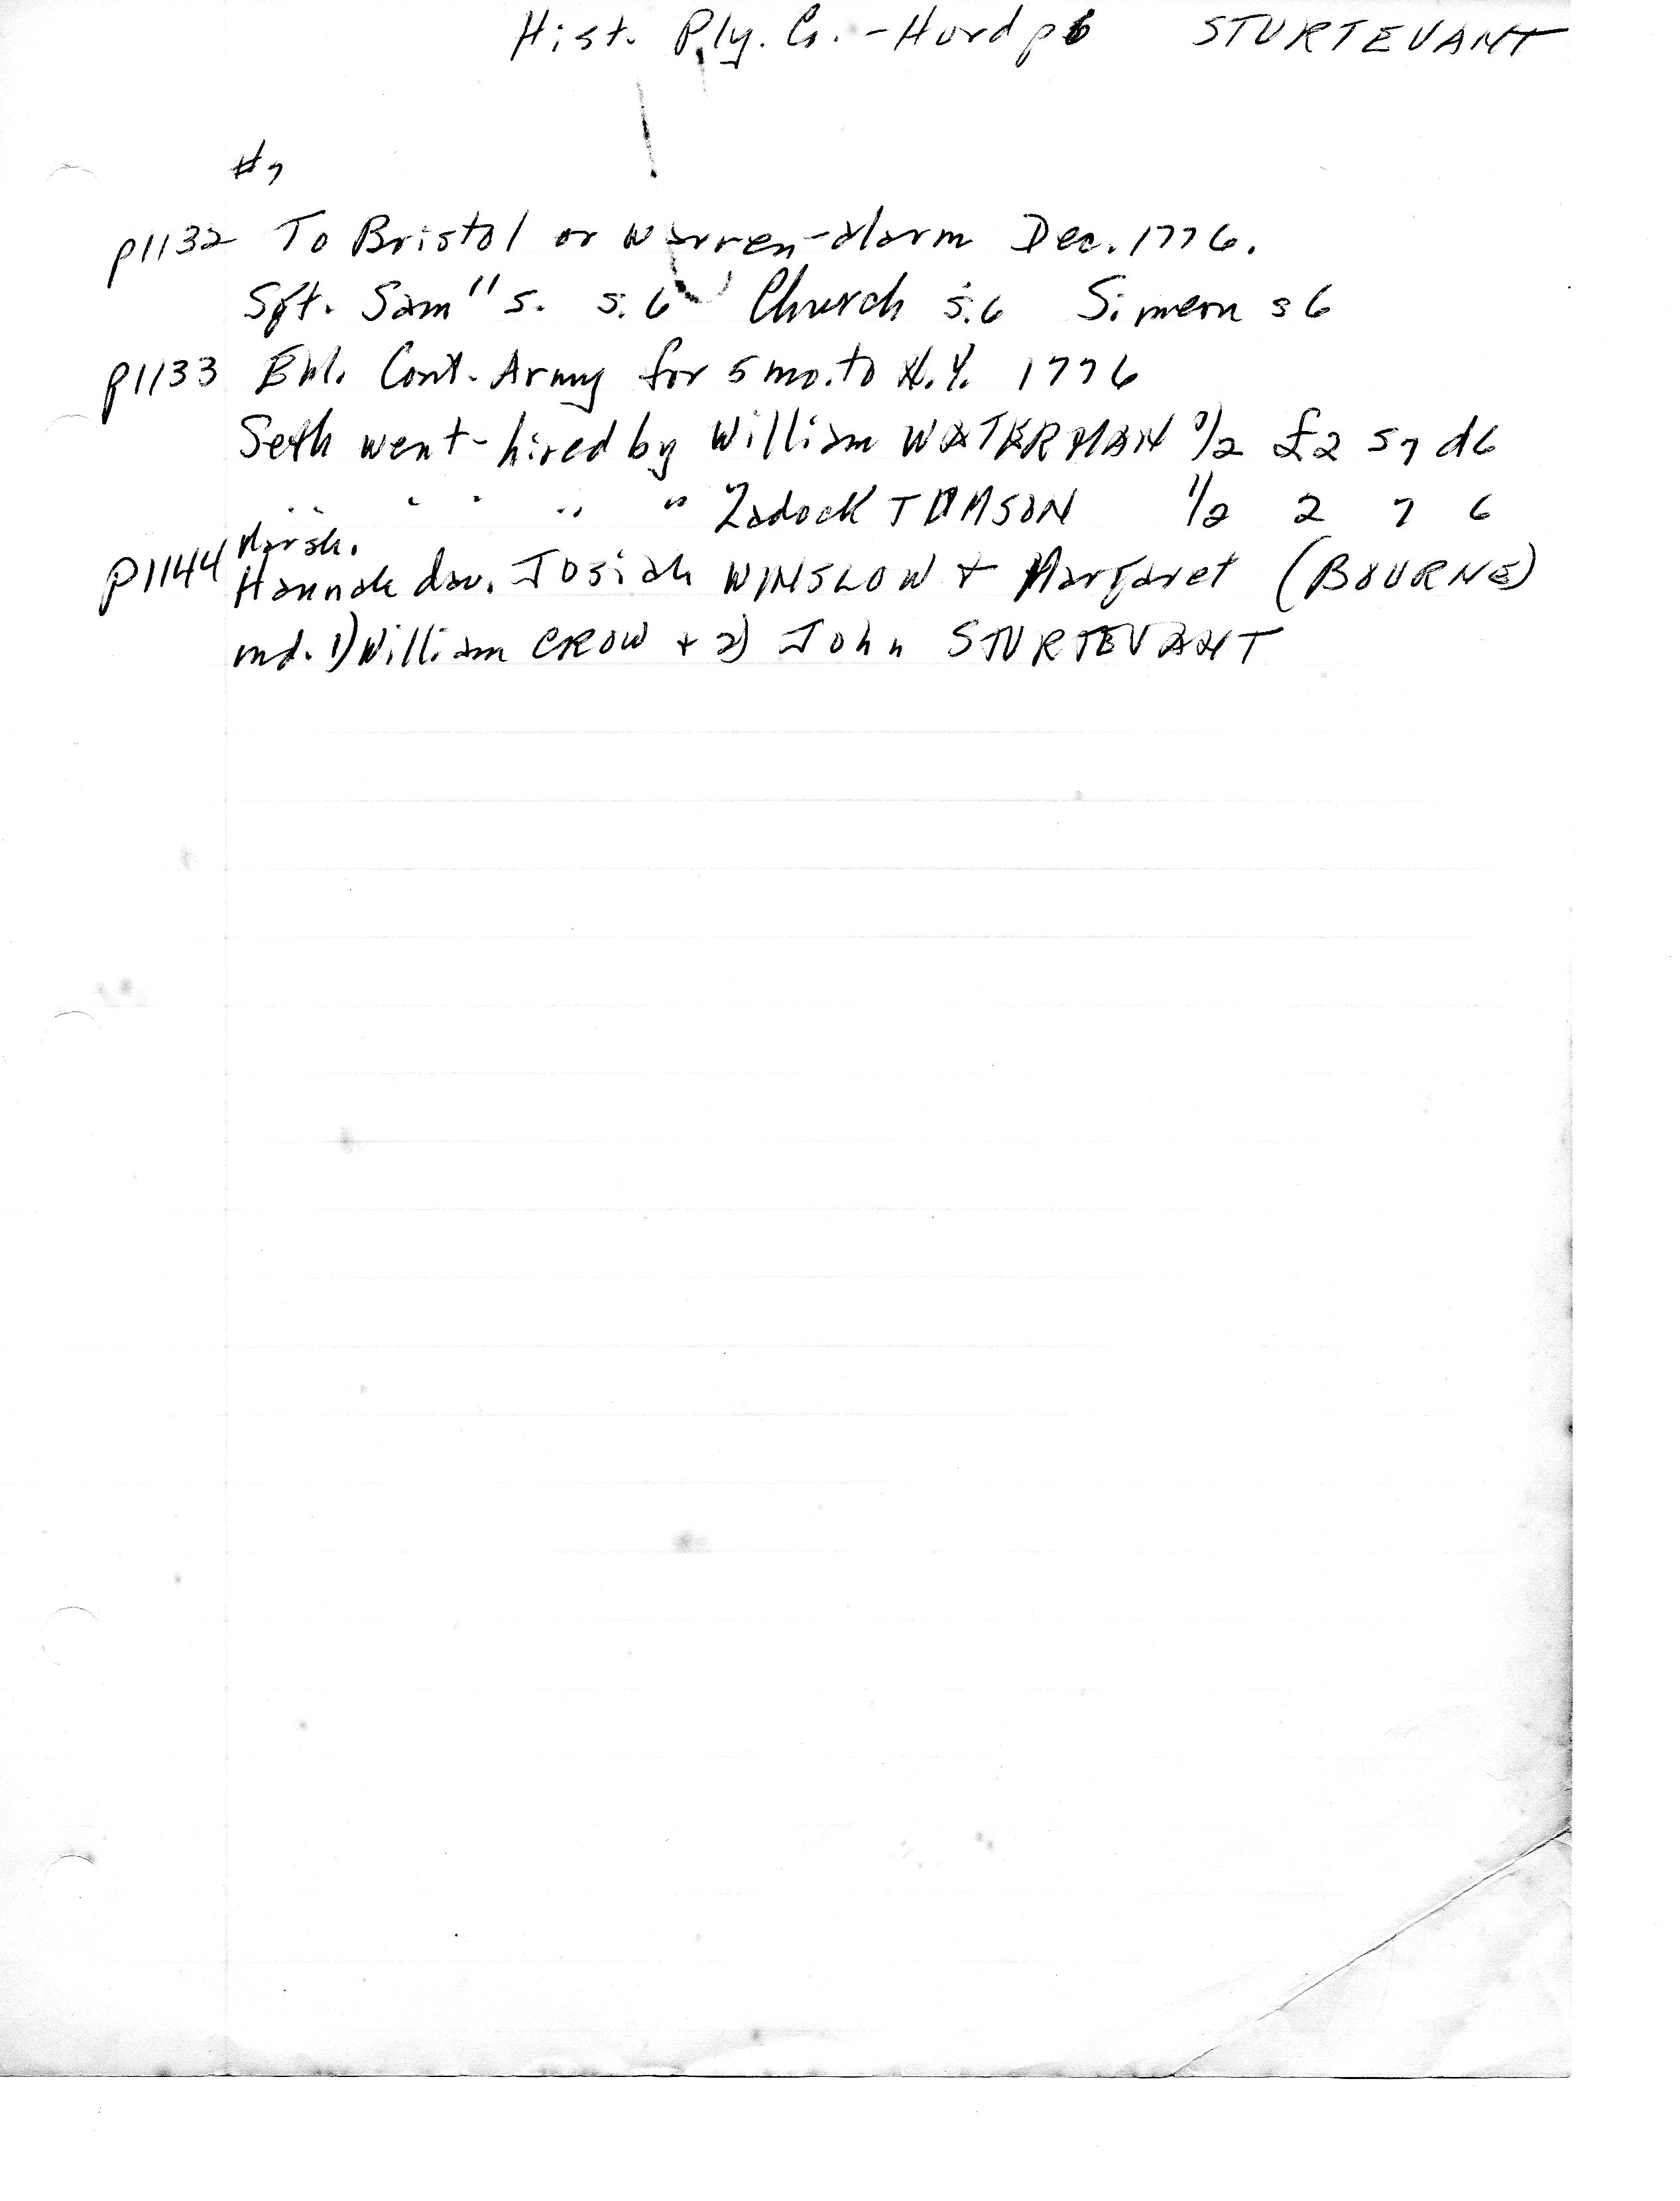 Hist. Ply. Co. - Hurd p6 STURTEVANT
#7
p1132 To Bristol or Warren-alarm Dec. 1776.
Sgt. Sam'll S. s.6 Church s.6 Simeon s 6
p1133 Enl. Cont. Army for 5 mo. to N.Y. 1776
Seth went-hired by William WATERMAN 1/2 £2 s7 d6
" " " " " Zadock TOMSON 1/2 2 7 6
Marsh.
p1144 Hannah dau. Josiah WINSLOW + Margaret (BOURNE)
md. 1) William CROW + 2) John STURTEVANT